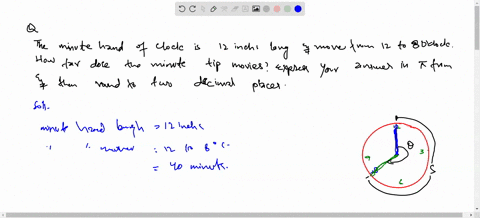 Q
The minute hand of clock is 12 inchs long & move from 12 to 8 O'clock.
How far dose the minute tip movies? express your answer in π from
& then round to two decimal places.
Sol.
minute hand length = 12 inchs
" " moves = 12 to 8
= 40 minute.
12
θ
9
3
S
8
6